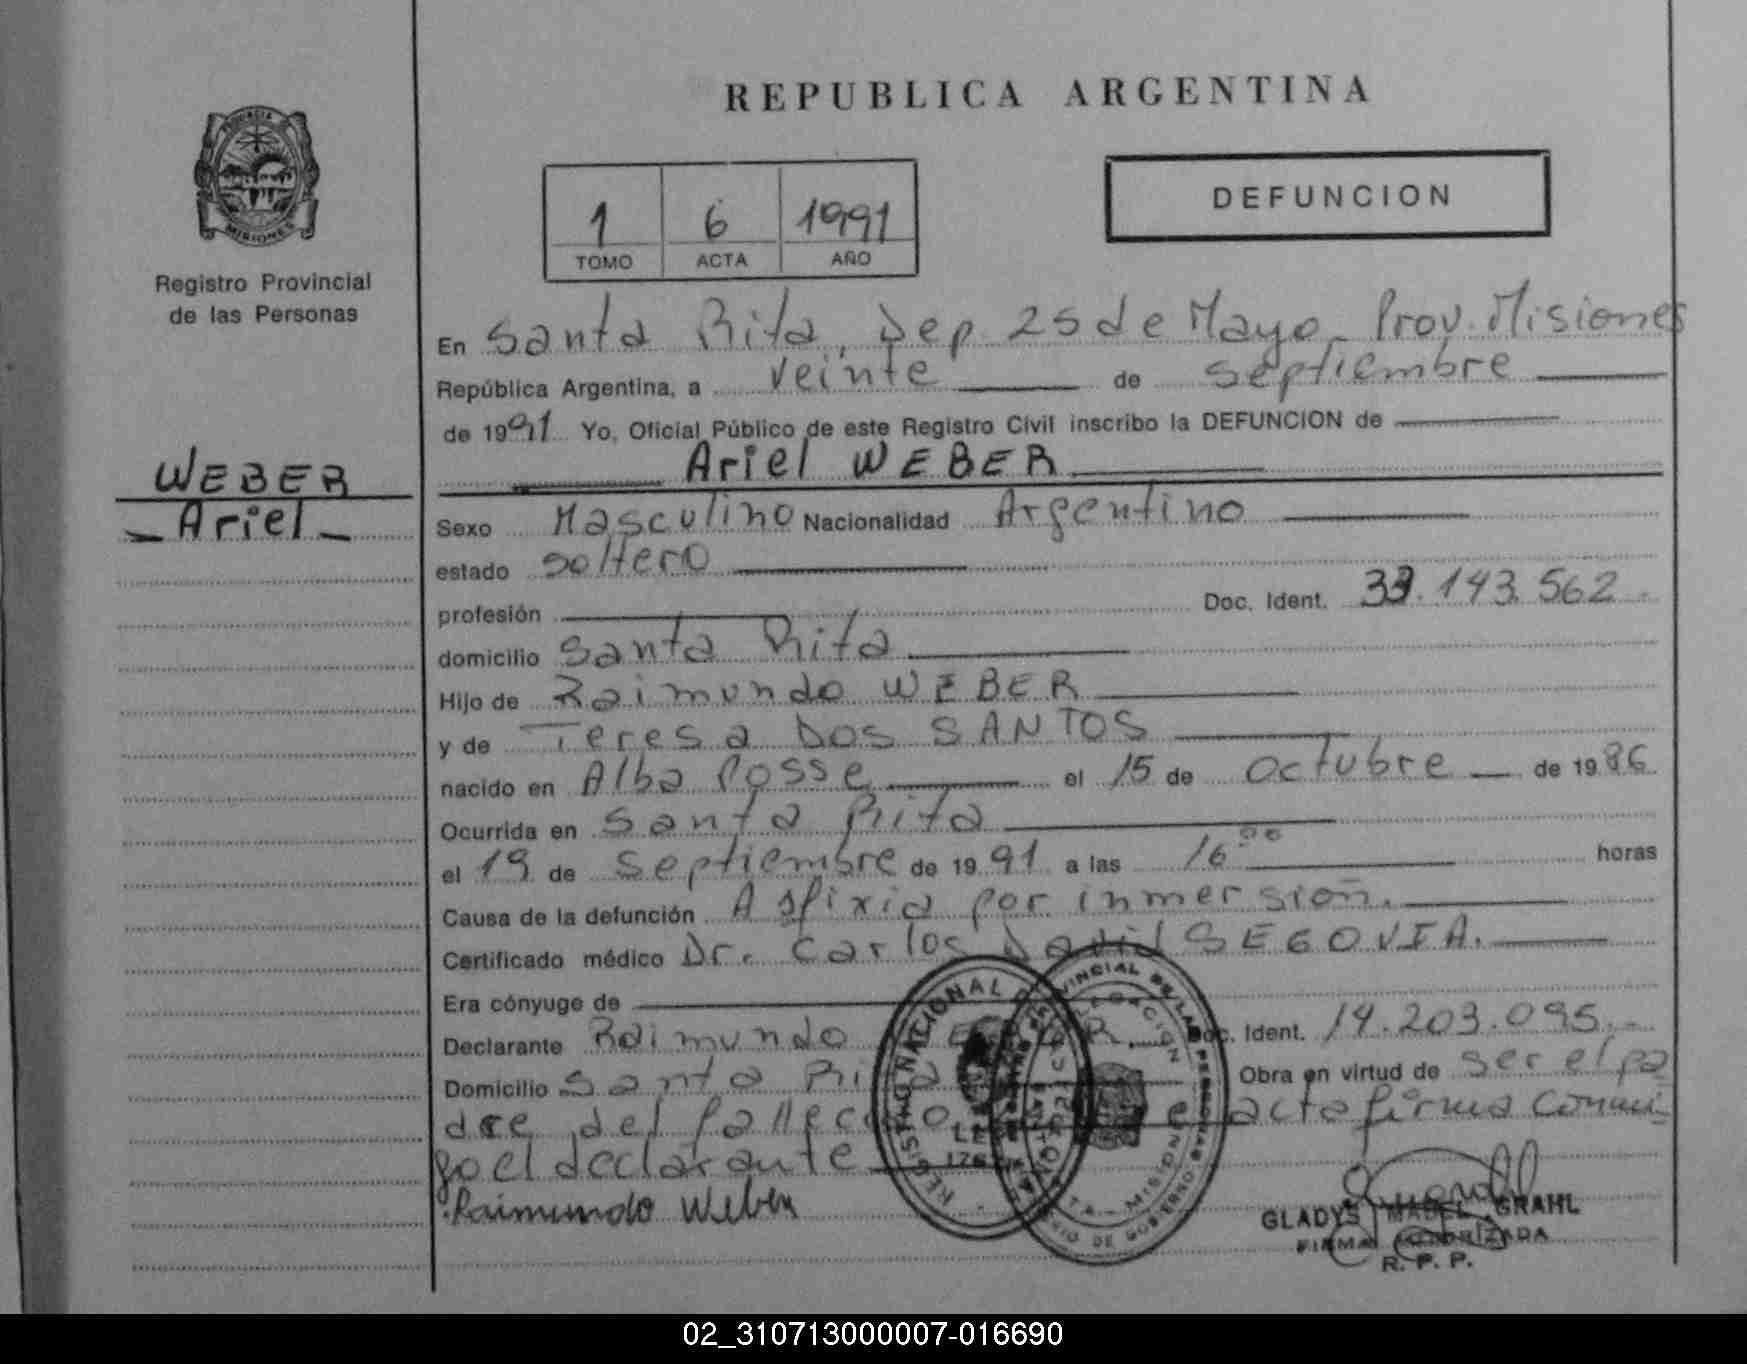 REPUBLICA ARGENTINA
PROVINCIA DE
MISIONES
Registro Provincial
de las Personas
1 6 1991
TOMO ACTA AÑO
DEFUNCION
En Santa Rita, Dep. 25 de Mayo. Prov. Misiones
República Argentina, a veinte de septiembre
de 1991 Yo, Oficial Público de este Registro Civil inscribo la DEFUNCION de
Ariel WEBER
WEBER
Ariel
Sexo Masculino Nacionalidad Argentino
estado soltero
profesión Doc. Ident. 33.143.562
domicilio Santa Rita
Hijo de Raimundo WEBER
y de Teresa DOS SANTOS
nacido en Alba Posse el 15 de Octubre de 1986
Ocurrida en Santa Rita
el 19 de Septiembre de 1991 a las 16 00 horas
Causa de la defunción Asfixia por inmersión.
Certificado médico Dr. Carlos David SEGOVIA.
Era cónyuge de
Declarante Raimundo WEBER. Doc. Ident. 14.203.095.-
Domicilio Santa Rita Obra en virtud de ser el pa
dre del fallecido acto firma conmi
go el declarante
Raimundo Weber
REGISTRO NACIONAL
GLADYS MABEL GRAHL
FIRMA AUTORIZADA
R. P. P.
02_310713000007-016690